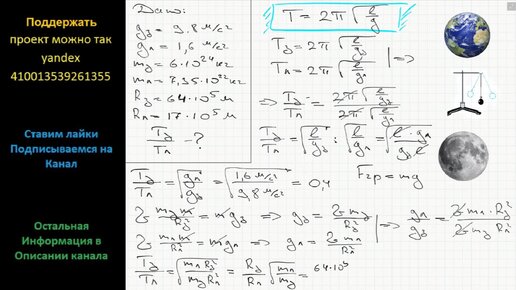 Поддержать
проект можно так
yandex
410013539261355
Ставим лайки
Подписываемся на
Канал
Остальная
Информация в
Описании канала
Дано:
g₃ = 9,8 м/с²
gл = 1,6 м/с²
m₃ = 6·10²⁴ кг
mл = 7,35·10²² кг
R₃ = 64·10⁵ м
Rл = 17·10⁵ м
T₃/Tл - ?
T = 2π√(l/g)
T₃ = 2π√(l/g₃)
Tл = 2π√(l/gл) | =>
=> T₃/Tл = 2π√(l/g₃) / 2π√(l/gл)
T₃/Tл = √(l/g₃) : √(l/gл) = √(l·gл/g₃·l)
T₃/Tл = √(gл/g₃) = √(1,6 м/с²/9,8 м/с²) = 0,4
Fгр = mg
G m₃m/R₃² = mg₃ => g₃ = G m₃/R₃²
G mлm/Rл² = mgл => gл = G mл/Rл² | => gл/g₃ = G mл·R₃²/G m₃Rл²
T₃/Tл = √(mл R₃²/m₃ Rл²) = R₃/Rл √(mл/m₃) = 64·10⁵